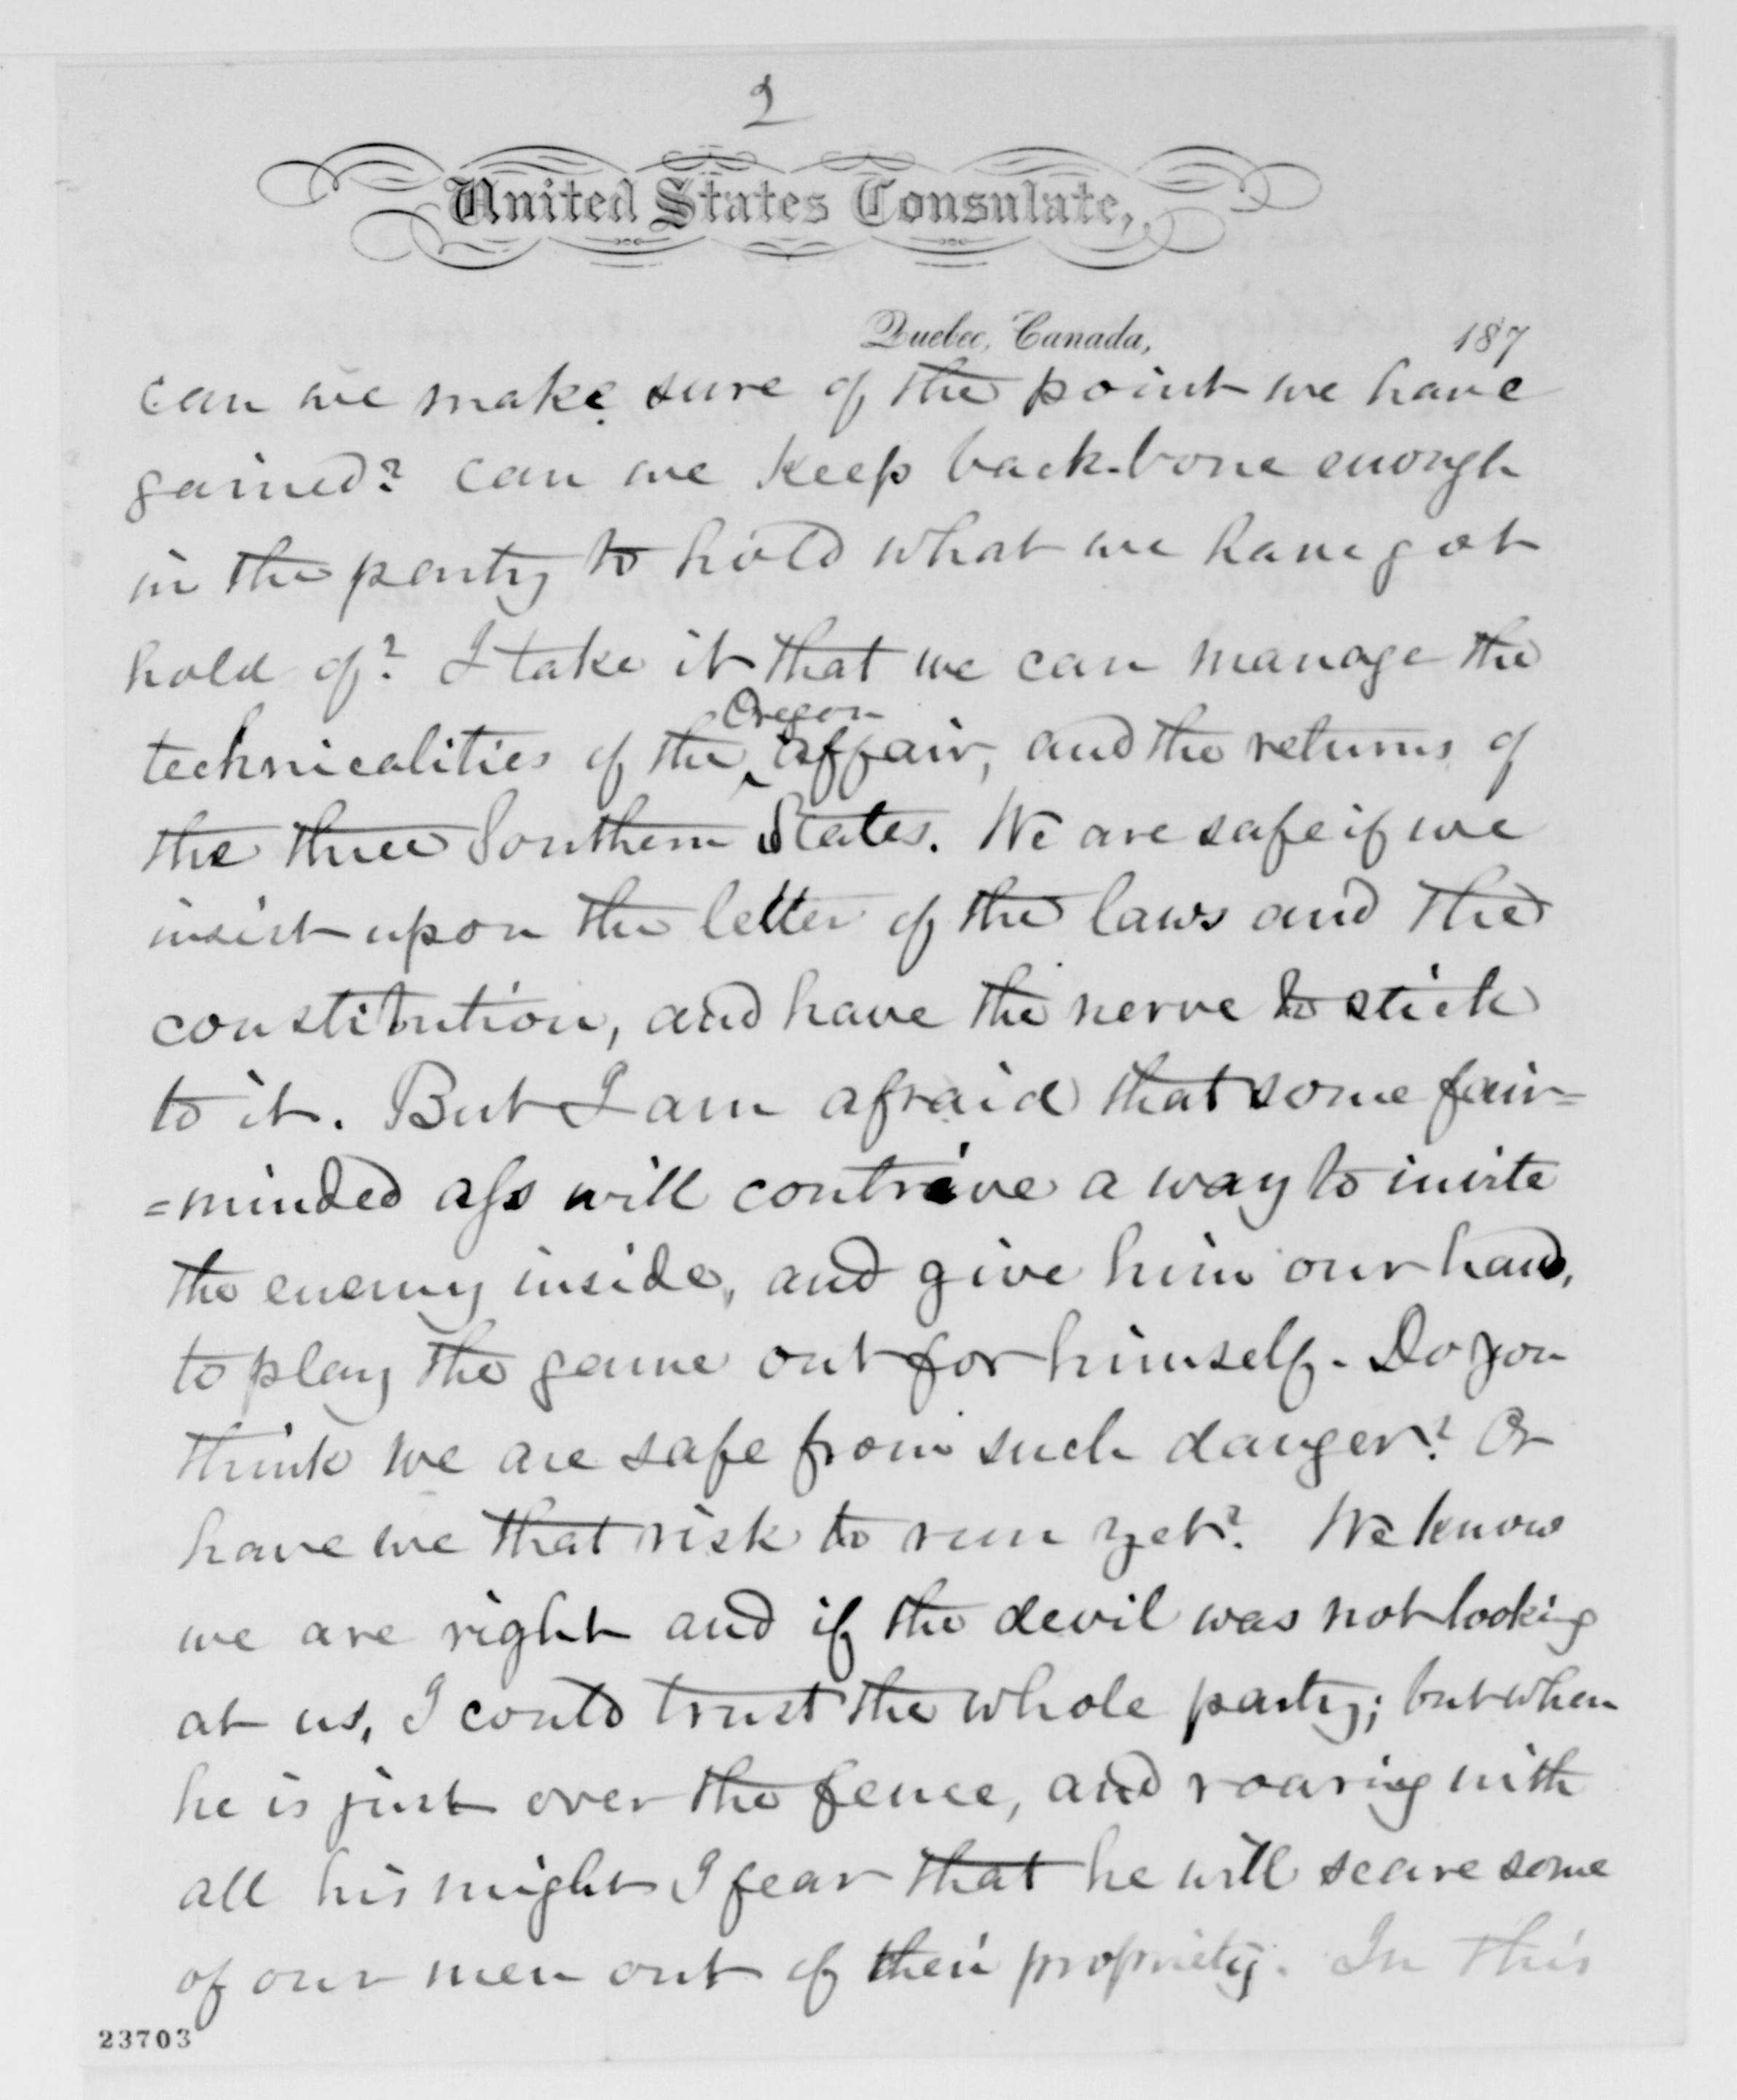 2
United States Consulate,
Quebec, Canada, 187
can we make sure of the point we have
gained? can we keep back-bone enough
in the party to hold what we have got
hold of? I take it that we can manage the
Oregon
technicalities of the ‸ affair, and the returns of
the three Southern States. We are safe if we
insist upon the letter of the laws and the
constitution, and have the nerve to stick
to it. But I am afraid that some fair=
=minded ass will contrive a way to invite
the enemy inside, and give him our hand,
to play the game out for himself. Do you
think we are safe from such danger? Or
have we that risk to run yet? We know
we are right and if the devil was not looking
at us, I could trust the whole party; but when
he is just over the fence, and roaring with
all his might I fear that he will scare some
of our men out of their propriety. In this
23703